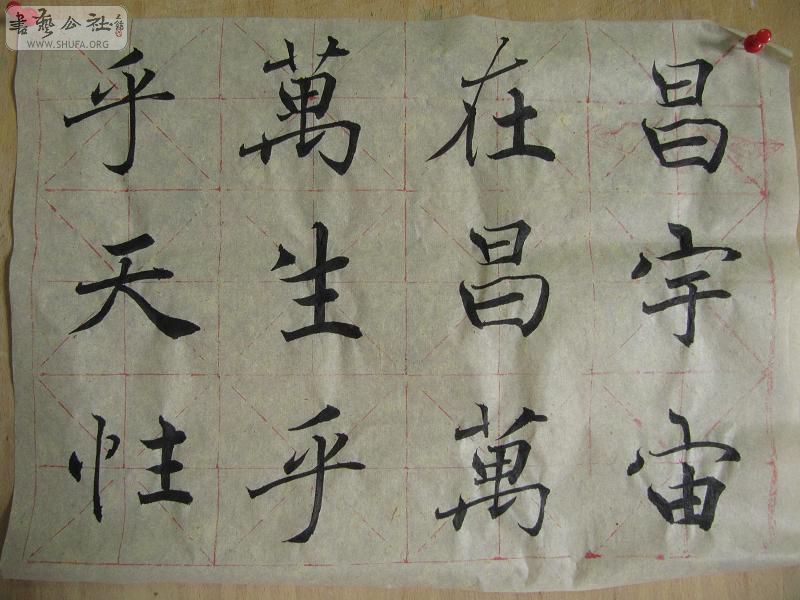 昌宇宙
在昌萬
萬生乎
乎天性
書藝公社
WWW.SHUFA.ORG